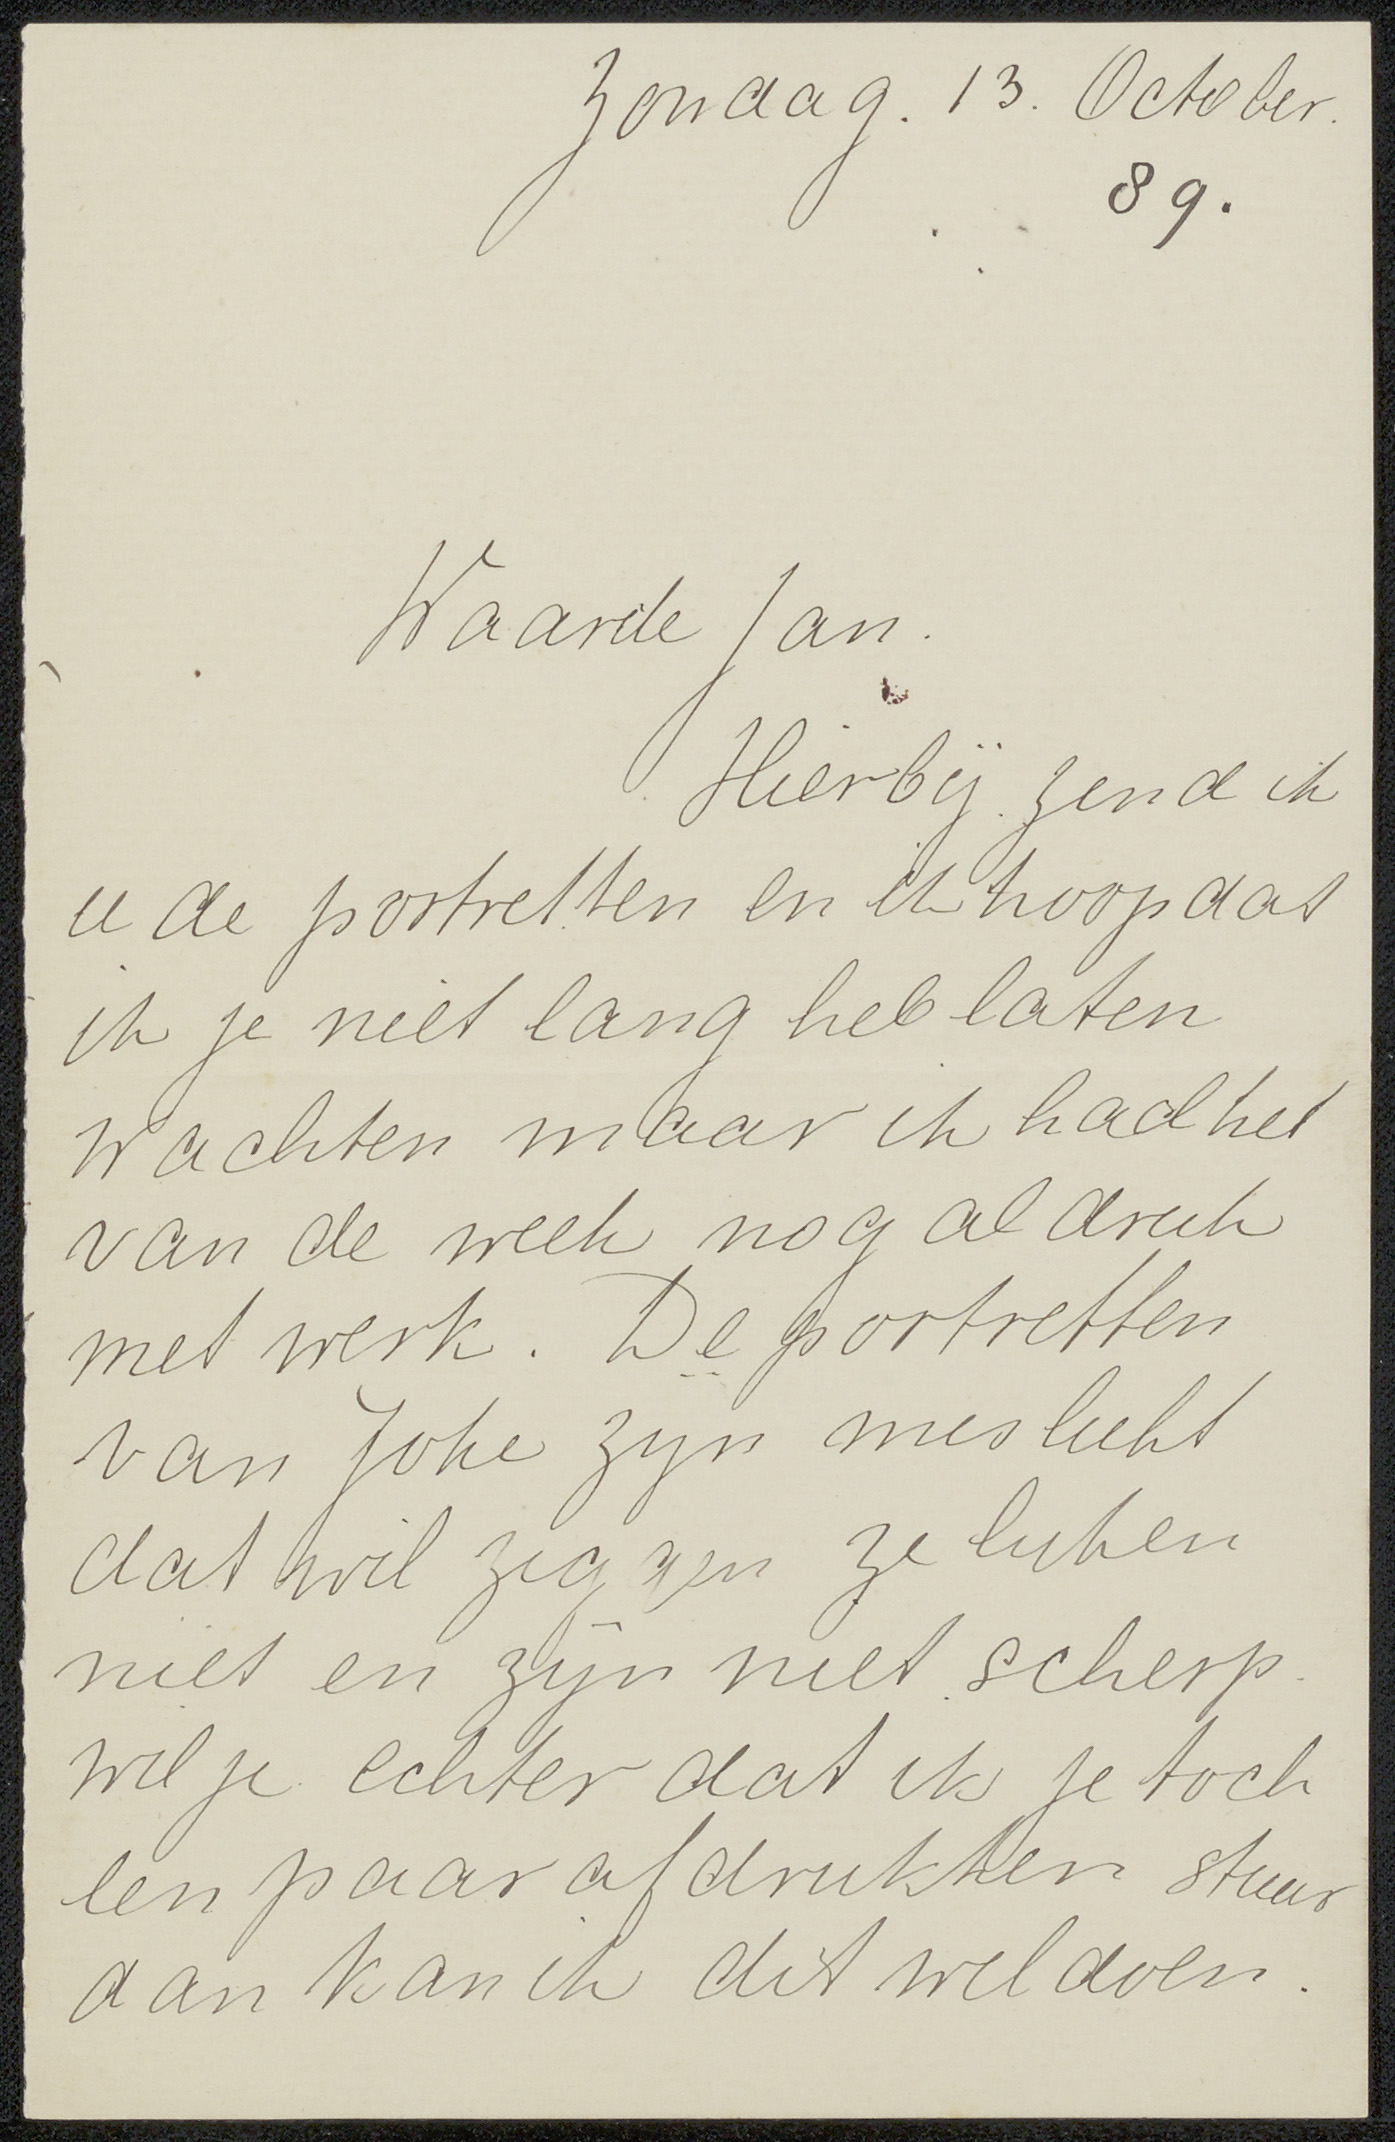 Zondag. 13. October.
89.
Waarde Jan.
Hierbij zend ik
u de portretten en ik hoop dat
ik je niet lang heb laten
wachten maar ik had het
van de week nog al druk
met werk. De portretten
van Joke zijn mislukt
dat wil zeggen ze lijken
niet en zijn niet scherp.
wil je echter dat ik je toch
een paar afdrukken stuur
dan kan ik dit wel doen.